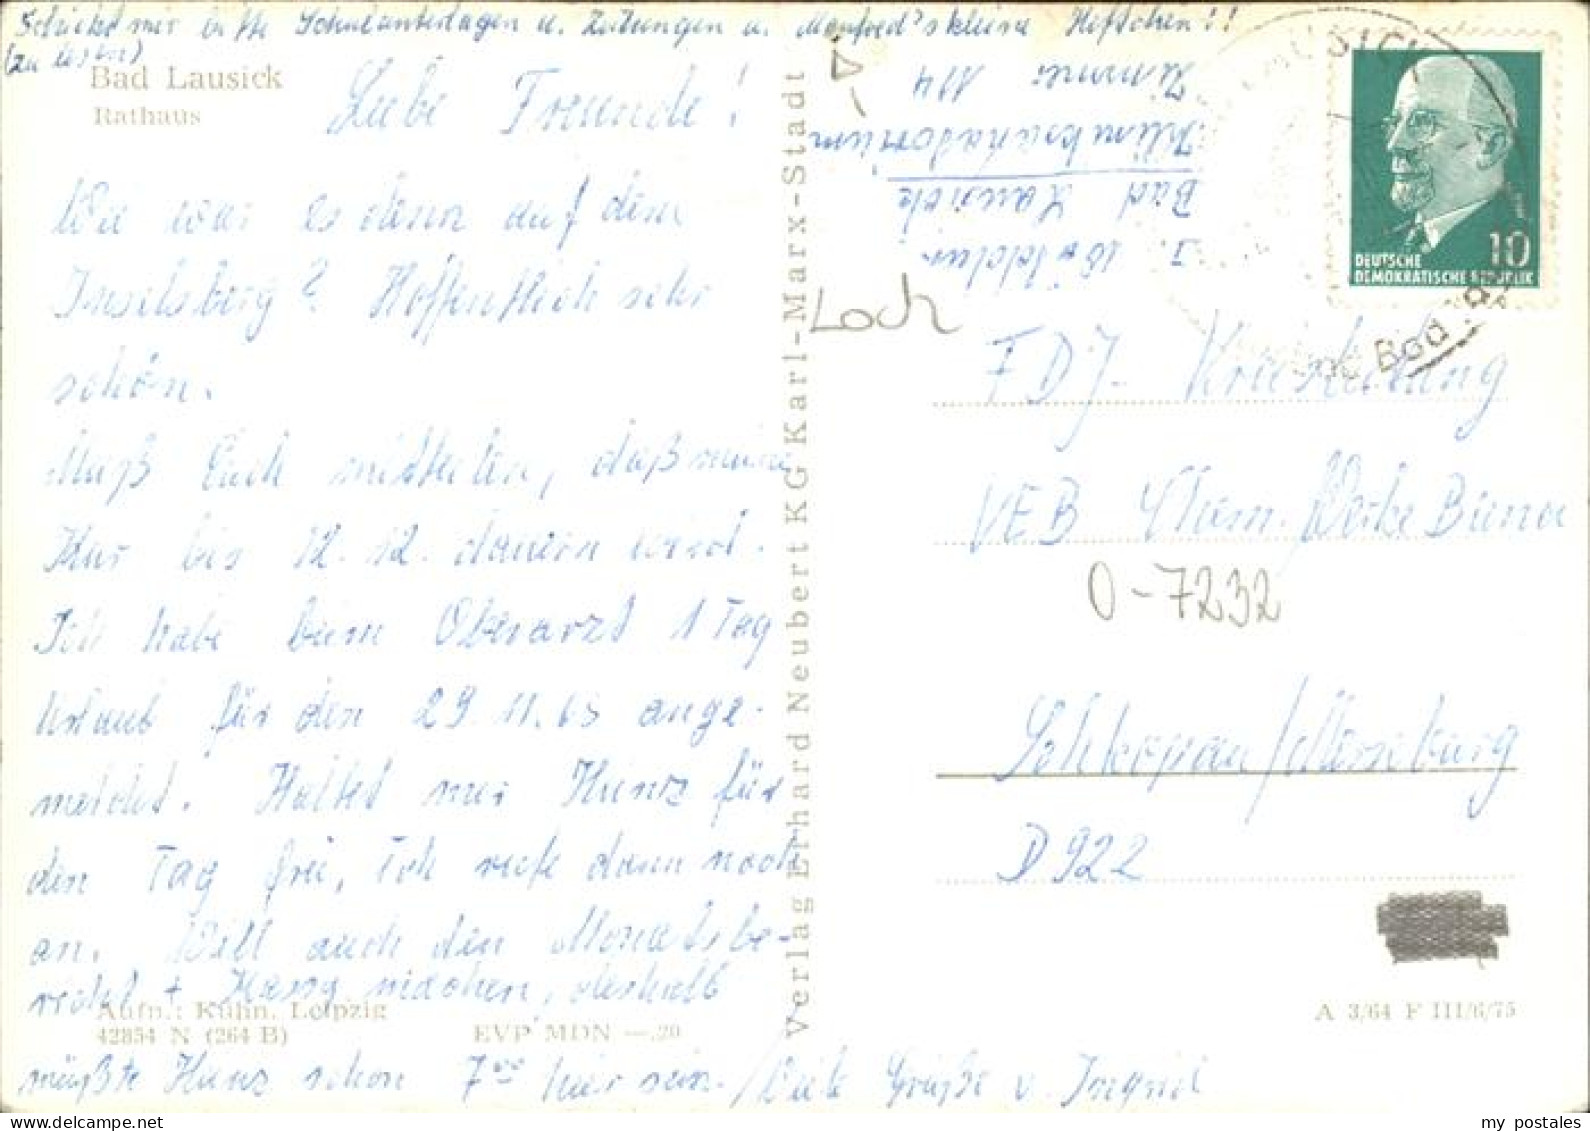 Schickt mir bitte Schulunterlagen u. Zeitungen u. Manfred's kleine Heftchen!!
(zu lesen)
Bad Lausick
Rathaus
Liebe Freunde!
Wie war es denn auf dem
Inselsberg? Hoffentlich sehr
schön.
Muß Euch mitteilen, daß meine
Kur bis 12.12. dauern wird.
Ich habe beim Oberarzt 1 Tag
Urlaub für den 29.11.65 ange-
meldet. Haltet mir Heinz für
den Tag frei, ich rufe dann noch
an. Will auch den Monatsbe-
richt + machen, deshalb
müßte Heinz schon 7⁰⁰ hier sein. / Viele Grüße v. Ingrid
Aufn.: Kühn, Leipzig
42854 N (264 B)
EVP MDN —,20
Verlag Erhard Neubert KG Karl-Marx-Stadt
I.
Bad Lausick
Klinik sanatorium
Zimmer 114
Loch
DEUTSCHE
DEMOKRATISCHE REPUBLIK
10
FDJ-Kreisleitung
VEB Chem. Werke Buna
0-7232
Schkopau/Merseburg
D 922
A 3/64 F III/6/75
my postales